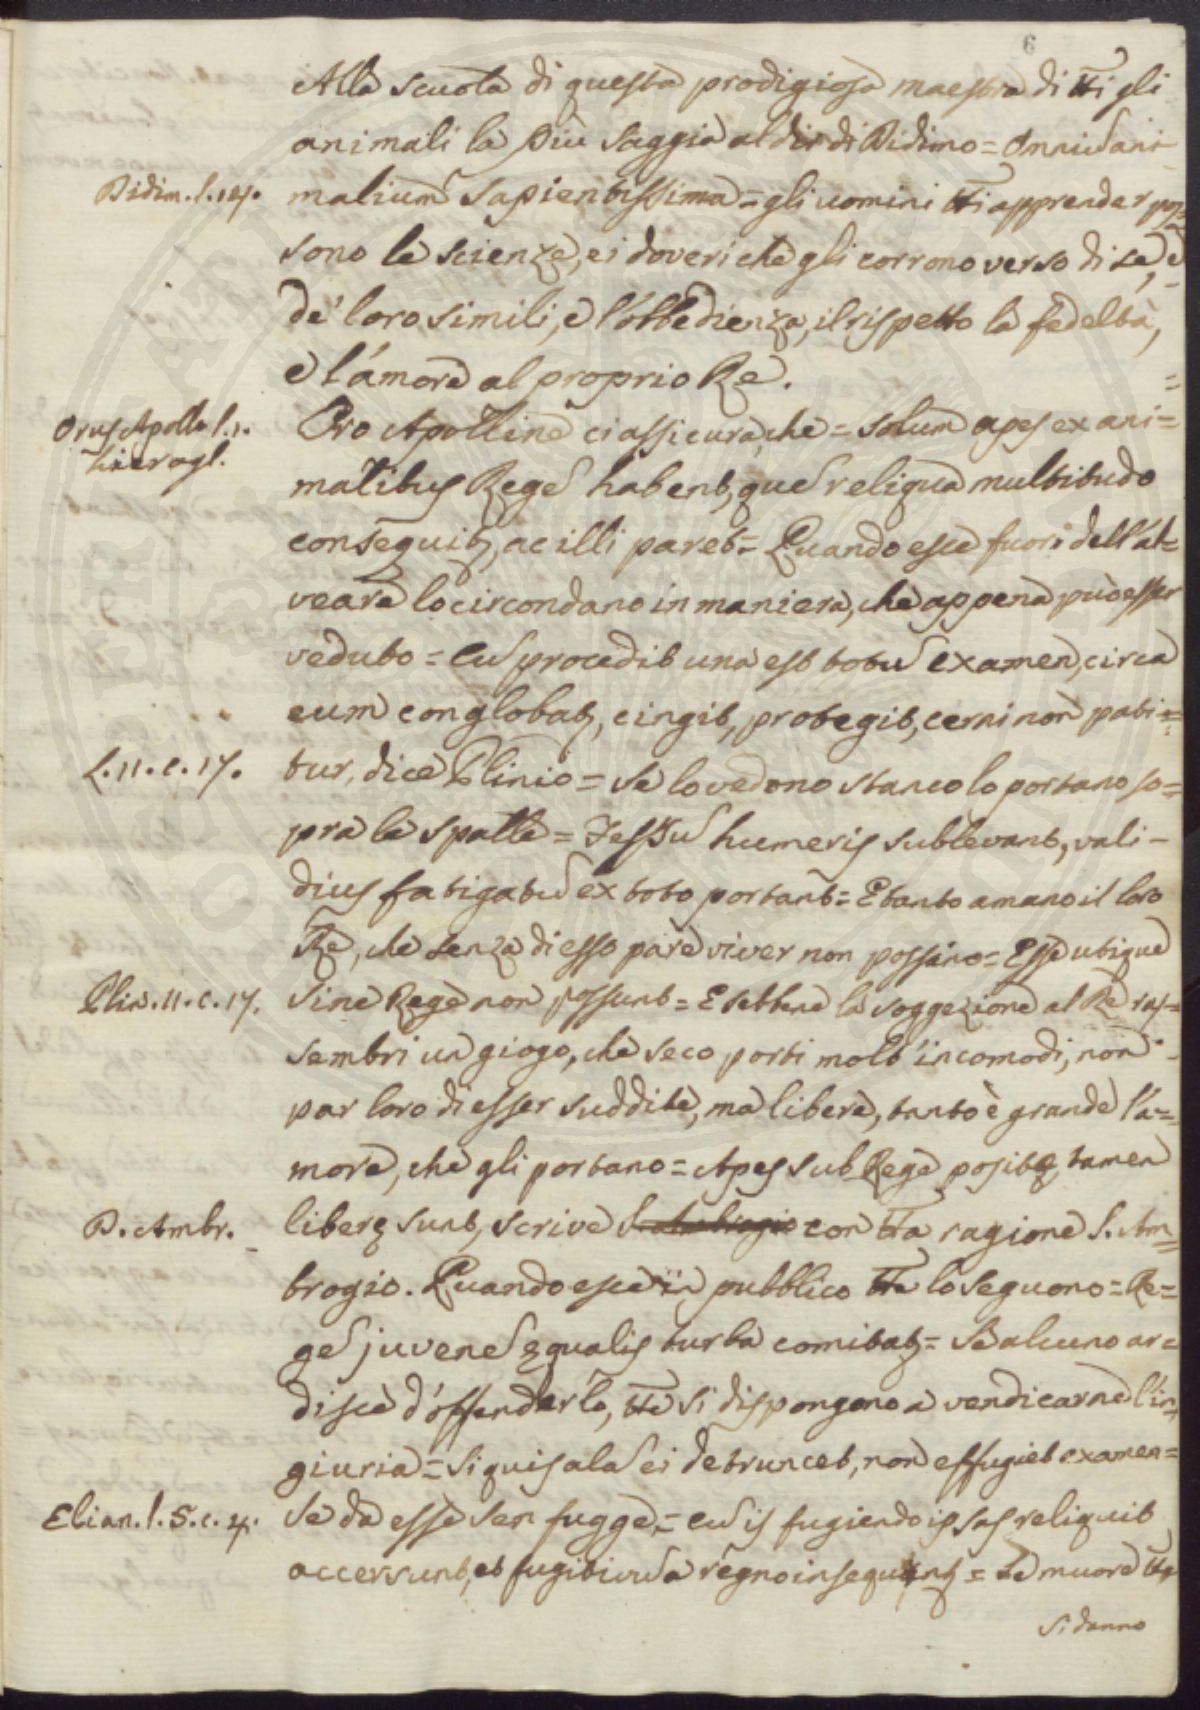 6
Alla scuola di questa prodigiosa maestra di tti gli
animali la più saggia al dir di Didimo = Omniu ani-
Didim. l. 14. malium sapientissima = gli uomini tti apprender pos=
sono le scienze, ei doveri che gli corrono verso di se, e
de' loro simili, e l'obbedienza, il rispetto la fedeltà,
e l'amore al proprio Re.
Orus Apollo l. 1. hierogl.
Oro Apolline ci assicura, che = solum apes ex ani=
malibus Rege habent, que reliqua multitudo
consequit, ac illi paret = Quando esce fuori dell'al=
veare lo circondano in maniera, che appena può esser
veduto = Cu procedit una est totu examen, circa
eum conglobat, cingit, protegit, cerni non pati=
L. 11. c. 17. tur, dice Plinio = Se lo vedono stanco lo portano so=
pra le spalle = Fessu humeris sublevant, vali-
dius fatigatu ex toto portant = E tanto amano il loro
Re, che senza di esso pare viver non possino = Esse utique
Plin. 11. c. 17. sine Rege non possunt = E sebbene la soggezione al Re ras=
sembri un giogo, che seco porti molt'incomodi, non
par loro di esser suddite, ma libere, tanto è grande l'a=
more, che gli portano = Apes sub Rege positę, tamen
D. Ambr. liberę sunt, scrive con tta ragione S. Am=
brogio. Quando esce in pubblico tte lo seguono = Re=
ge juvene ęqualis turba comitat = Se alcuno ar=
disce d'offenderlo, tte si dispongono a vendicarne l'in=
giuria = Si quis ala ei detruncet, non effugiet examen =
Elian. l. 5. c. 4. Se da esse sen fugge = cu is fugiendo ipsas reliquit
accersunt, et fugitivu a regno insequnt = Se muore tte
si danno